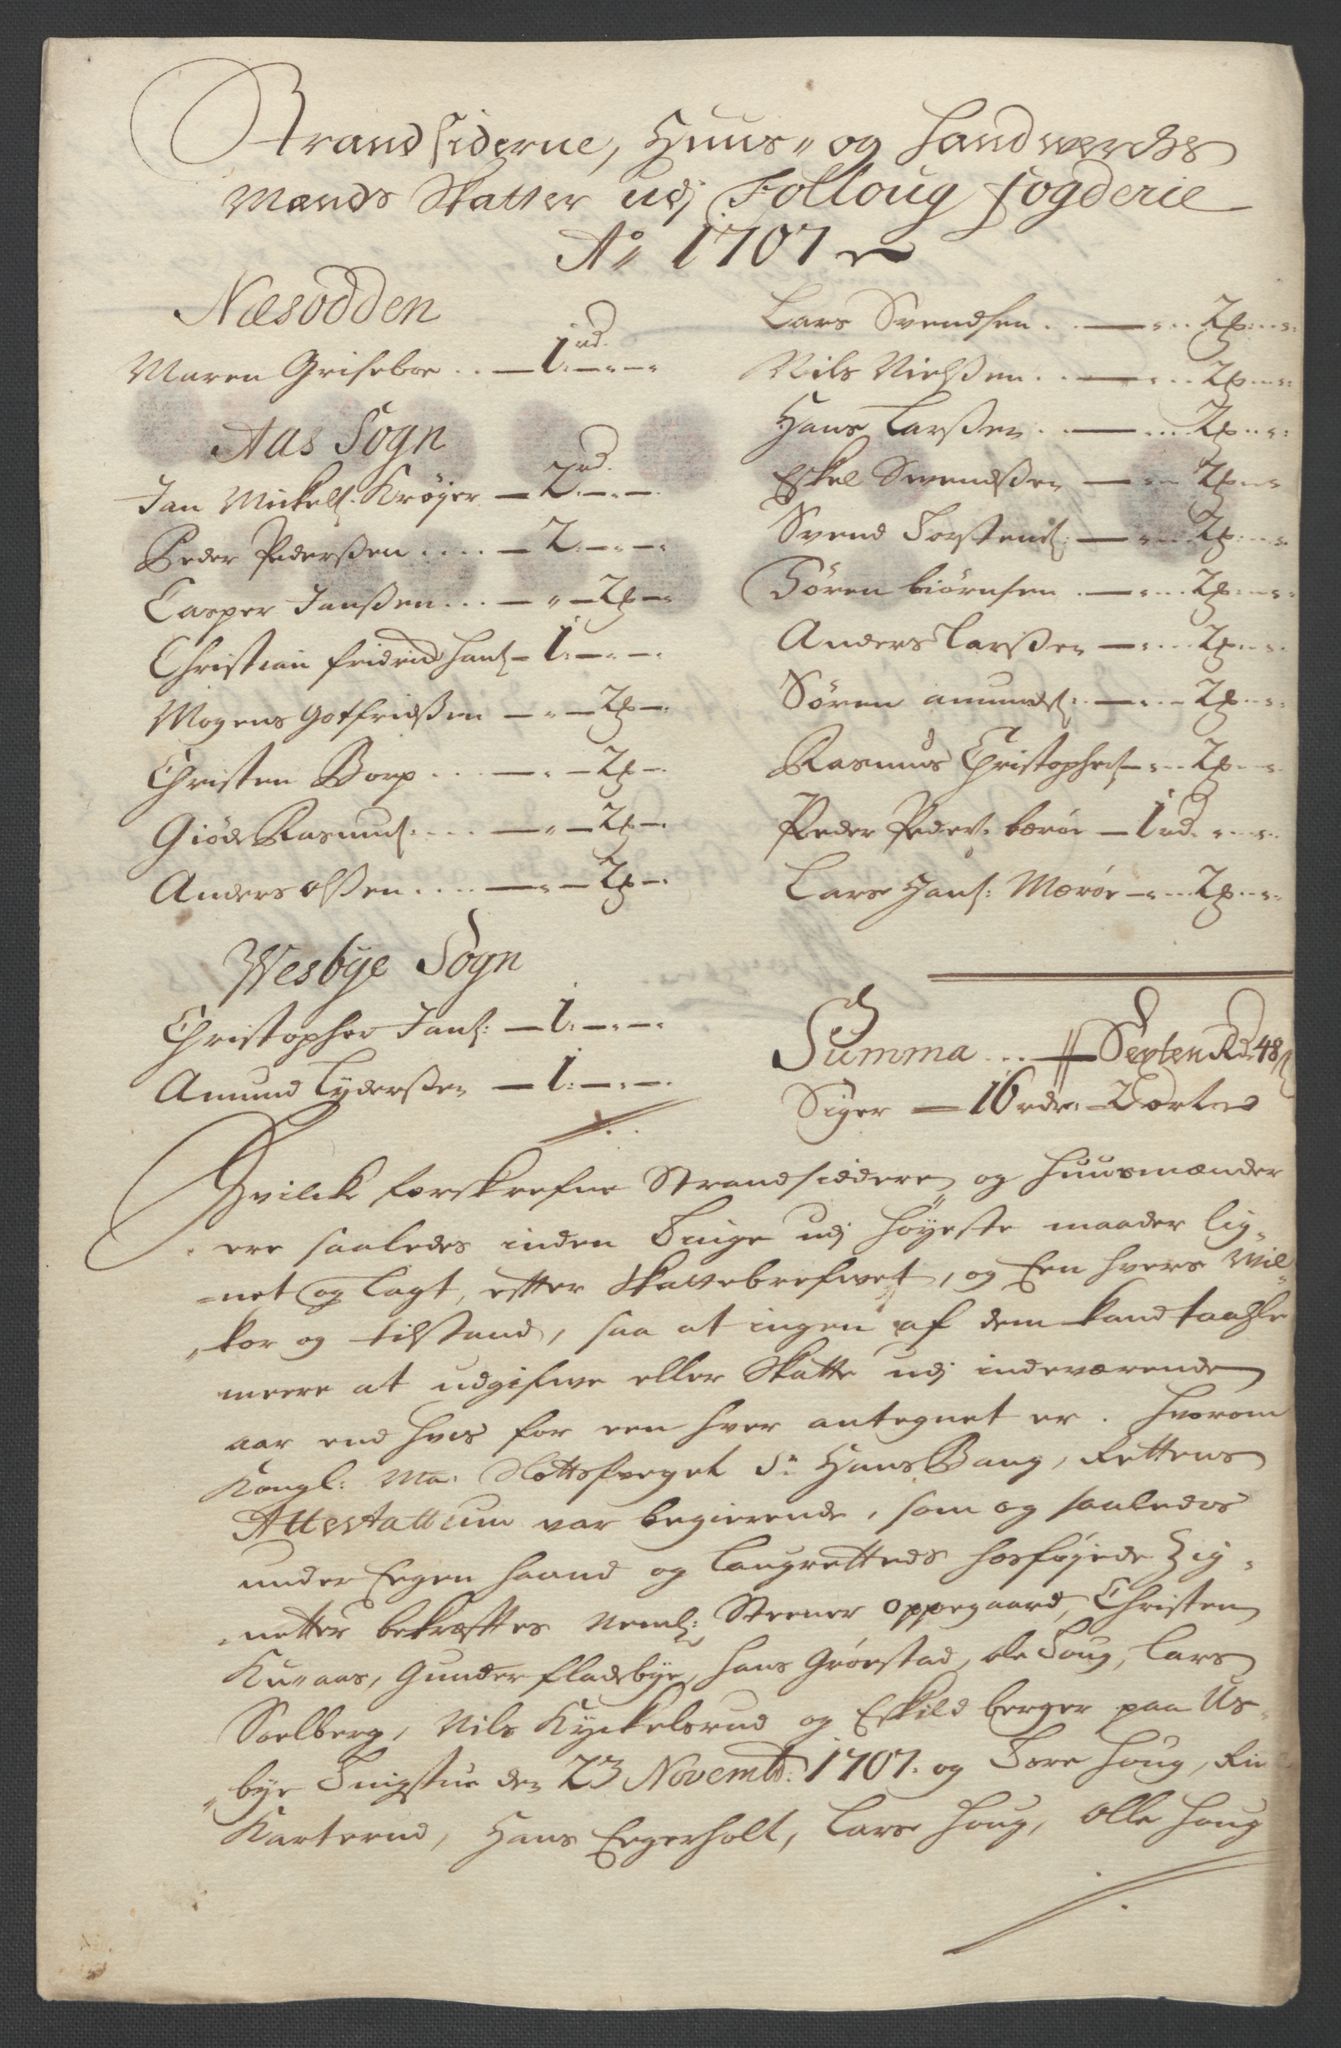 Strandsiderne, Huus- og Handwerchs
Mænds Skatter udj Folloug fogderie
Ao 1707
Næsodden
Maren Griseboe . . — 1 rd. — —
Aas Sogn
Jan Mickels: Krøyer — 2 rd. — —
Peder Pederßen . . . . — 2. — —
Casper Janßen . . . — " — 2
Christian fridrich Hans — 1. — —
Mogens Gotfridßen — " — 2
Christen Borp . . . — " — 2
Giøde Rasmus: . . . — " — 2
Anders Olßen . . . . — " — 2
Wesbye Sogn
Christopher Jans: — 1. — —
Amund Lyderßen — 1. — —
Lars Svendsen . . — 2
Nils Nielßen . . — 2
Hans Larßen . . — 2
Eskel Swendßen — 2
Svend Torstens: — 2
Sören biörnsen . — 2
Anders Larßen — 2
Sören amunds: — 2
Rasmus Christophers — 2
Peder Peders: bærøe — 1 rd.
Lars Hans: Mærøe — 2
Summa . . . — Sexten Rd 48
Siger — 16 rdr: 2 ort
Hvilcke forskrefne Strandsiddere, og huusmænder
ere saaledes inden Tinge udj høyeste maader lig-
-net og lagt, effter Skattebrefwet, og Een hvers Wil-
"kor og tilstand, saa at ingen af dem kand taahle
meere at udgifwe eller Skatte udj indeværende
aar end hvis for een hver antegnet er. Hvorom
Kongl: Ma: Slottsfoeget Sr Hans Bang, Rettens
Attestattium var begierende, som og saaledes
under Egen haand og Laugretteds hosføyede Zig-
-netter bekræfftes Neml: Steener Oppegaard, Christen
Ku-aas, Gunder fladebye, hans Grøstad, ole Toug, Lars
Soelberg, Nils Kyckelsrud og Eskild berger paa Us-
"bye Tingstue den 23 Novemb: 1707. og Tore houg,
Karterud, Hans Egerholt, Lars houg, Olle houg